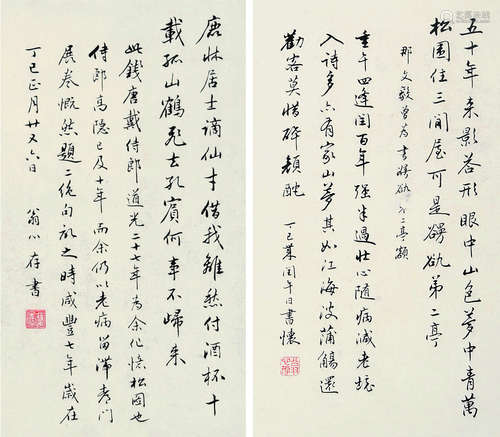 五十年來影答形眼中山色夢中青萬
松圍住三間屋可是第二亭
那文毅曾為書第二亭額
重午四逢閏百年強半過壯心隨病減老境
入詩多亦有家山夢其如江海波蒲觴還
勸客莫惜醉顏酡 丁巳閏午日書懷
鹿牀居士謫仙才借我離愁付酒杯十
載孤山鶴飛去孔賓何事不歸來
此錢唐戴侍郎道光二十七年為余作憶松圖也
侍郎高隱已及十年而余仍以老病留滯門
展卷慨然題二絕句記之時咸豐七年歲在
丁巳正月廿又六日 翁心存書